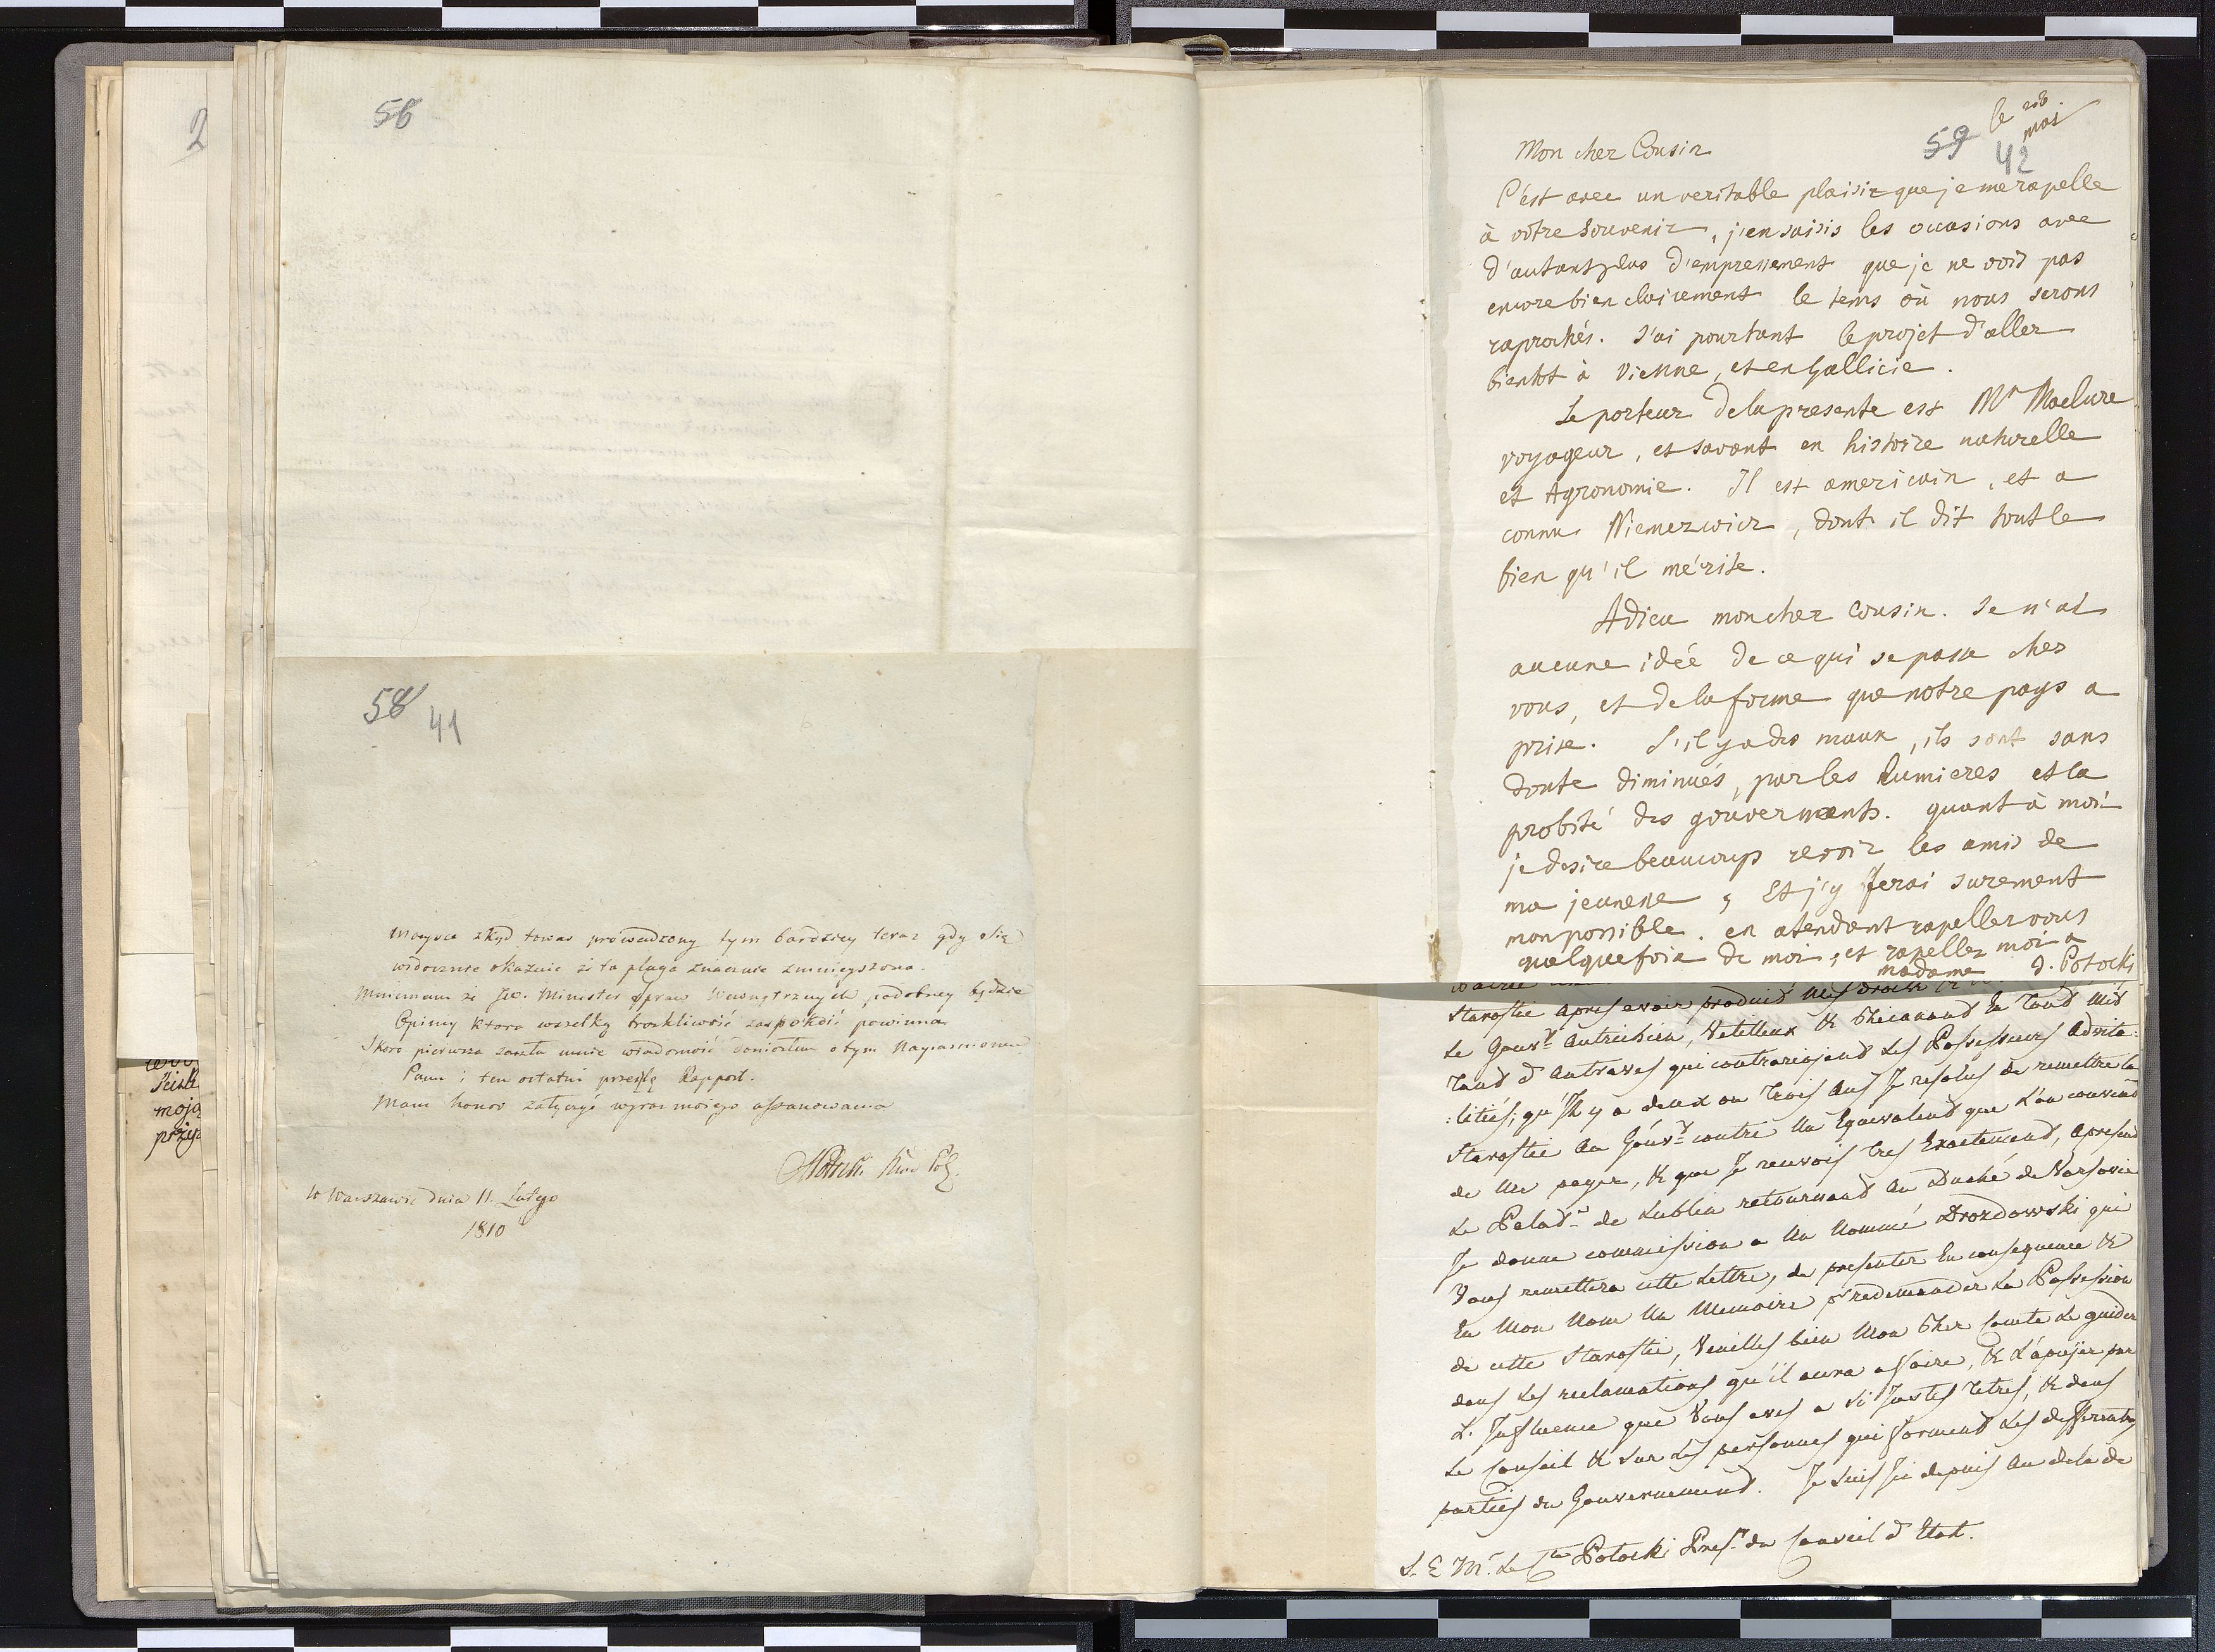 2
56
58
41
moja
przyp
Mieysca zkąd towar prowadzony tym bardziey teraz gdy się
widocznie okazuie iż ta plaga znacznie zmnieyszona.
Mniemam że JW. Minister Spraw Wewnętrznych podobney będzie
Opinij ktora wszelką troskliwość zaspokoić powinna
Skoro pierwsza zaszła mnie wiadomość doniosłem o tym Nayiasnieyszemu
Panu i ten ostatni przesyłę Rapport.
Mam honor załączyć wyraz moiego uszanowania
W Warszawie dnia 11. Lutego
1810
le 20
mai
59
42
Mon cher Cousin
C'est avec un veritable plaisir que je me rapelle
à vôtre souvenir, j'en saisis les occasions avec
d'autant plus d'empressement que je ne vois pas
encore bien clairement le tems où nous serons
raprochés. J'ai pourtant le projet d'aller
bientot à Vienne, et en Gallicie.
Le porteur de la presente est Mr Maclure
voyageur, et savant en histoire naturelle
et Agronomie. Il est americain, et a
connu Niemcewicz, dont il dit tout le
bien qu'il mérite.
Adieu mon cher Cousin. Je n'ai
aucune idée de ce qui se passe chez
vous, et de la forme que notre pays a
prise. S'il y a des maux, ils sont sans
doute diminués, par les lumieres et la
probité des gouvernants. quant à moi
je desire beaucoup revoir les amis de
ma jeunesse, et j'y ferai surement
mon possible. en atendant rapellez vous
quelque fois de moi, et rapellez moi a
madame J. Potocki
Starostie apres avoir produit mes droits
Le Gouvt Autrichien, Vetilleux & Chicanant en tant mit
tant d'entraves qui contrariojent les Possesseurs Advita:
:litiés; qu'il y a deux ou trois ans Je resolus de remettre la
Starostie au Gouvt contre un Equivalent que l'on convint
de me payer, & que Je recevois tres Exactement, apresent
Le Palat de Lublin retournant au Duché de Varsovie
Je donne commission a un nommé Drozdowski qui
Vous remettera cette Lettre, de presenter en consequence &
En Mon Nom un Memoire pr redemander la Possession
de cette Starostie, Veuilles bien Mon Cher Comte Le guider
dans les reclamations qu'il aura affaire, & L'apujer par
L'Influence que Vous aves a si Justes titres, & dans
Le Conseil & sur les personnes qui forment les differentes
parties du Gouvernement. Je suis Ici depuis au dela de
S. E Mr. Le Cte Potocki Prest du Conseil d'Etat.